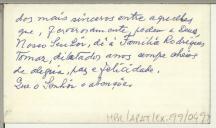 dos mais sinceros entre aquelles
que, fervorosamente, pedem a Deus,
Nosso Senhor, dê á Familia Rodrigues
Tomaz, dilatados anos sempre cheios
de alegria, paz e felicidade.
Que o Senhor o abençôe